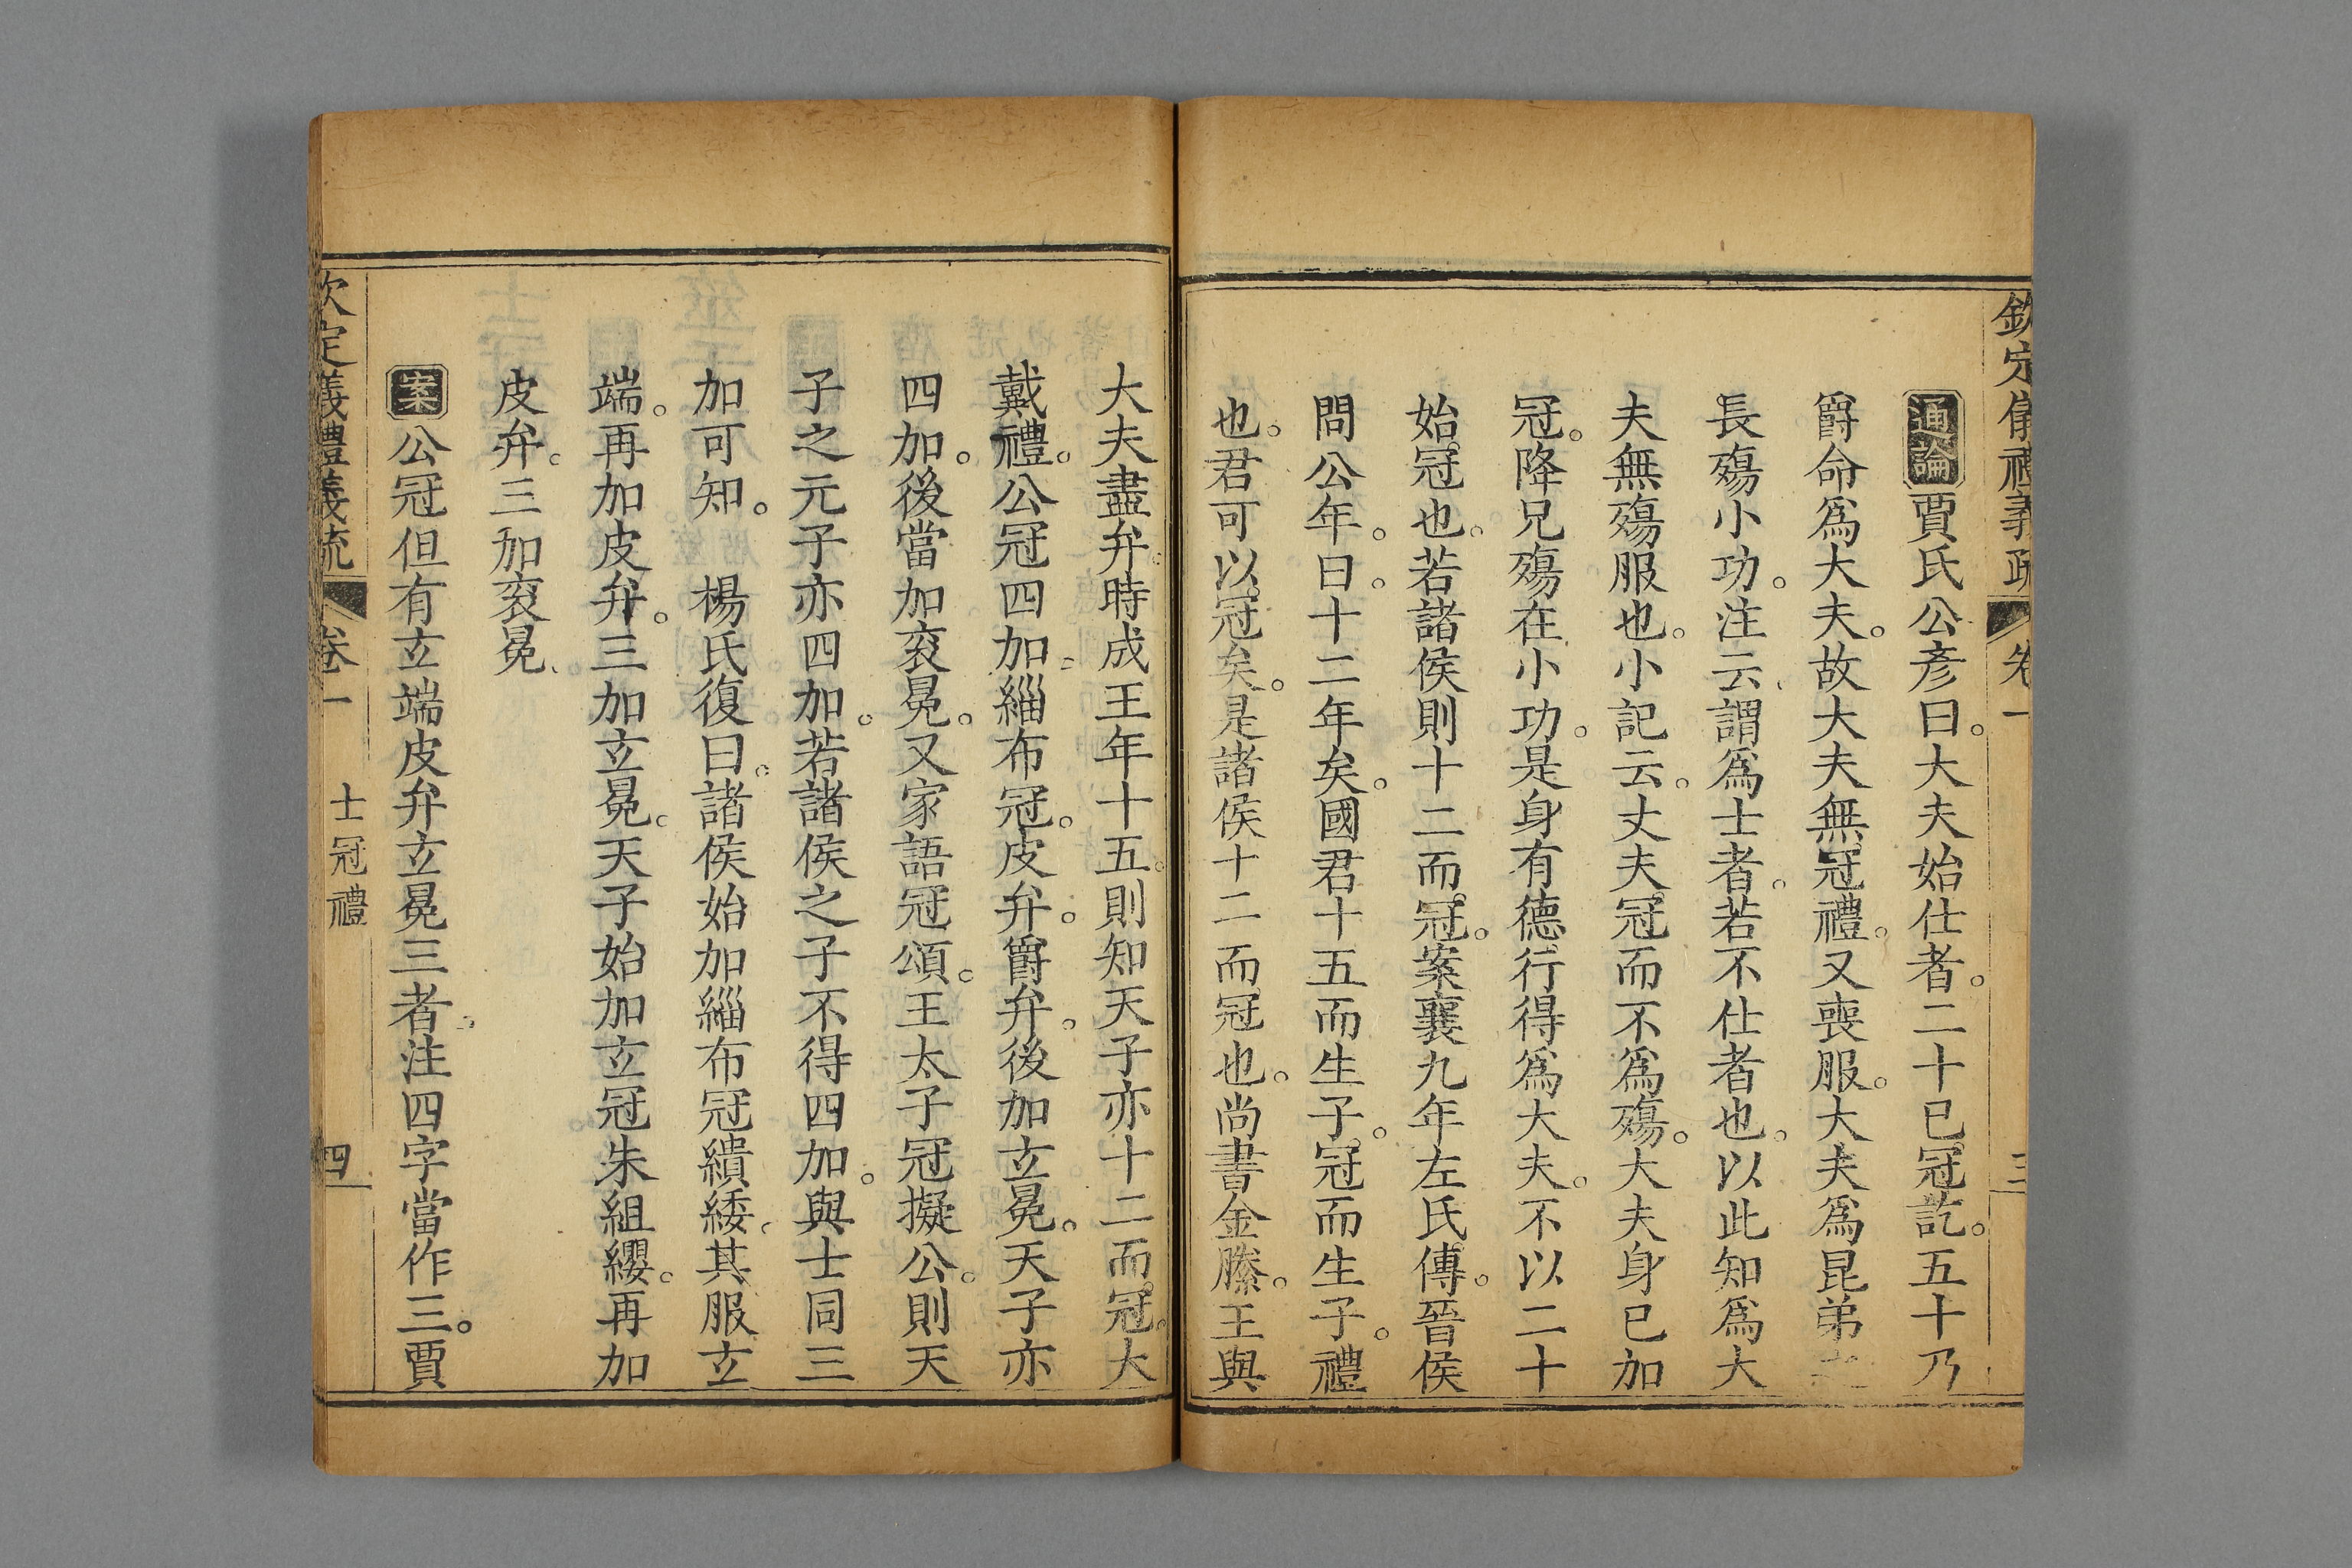 欽定儀禮義疏 卷一 三
通論賈氏公彥曰。大夫始仕者。二十已冠訖。五十乃
爵命爲大夫。故大夫無冠禮。又喪服。大夫爲昆弟
長殤小功。注云、謂爲士者。若不仕者也。以此知爲大
夫無殤服也。小記云。丈夫冠而不爲殤。大夫身已加
冠。降兄殤在小功。是身有德行得爲大夫。不以二十
始冠也。若諸侯則十二而冠。案襄九年左氏傳。晉侯
問公年。曰。十二年矣。國君十五而生子。冠而生子。禮
也。君可以冠矣。是諸侯十二而冠也。尚書金縢。王與
大夫盡弁。時成王年十五。則知天子亦十二而冠。大
戴禮。公冠四加、緇布冠。皮弁。爵弁。後加玄冕。天子亦
四加。後當加衮冕。又家語冠頌。王太子冠擬公。則天
子之元子亦四加。若諸侯之子不得四加。與士同三
加可知。　楊氏復曰。諸侯始加緇布冠繢緌。其服玄
端。再加皮弁。三加玄冕。天子始加玄冠朱組纓。再加
皮弁。三加衮冕、
案公冠但有玄端皮弁玄冕三者、注四字當作三。賈
欽定義禮義疏 卷一 士冠禮 四